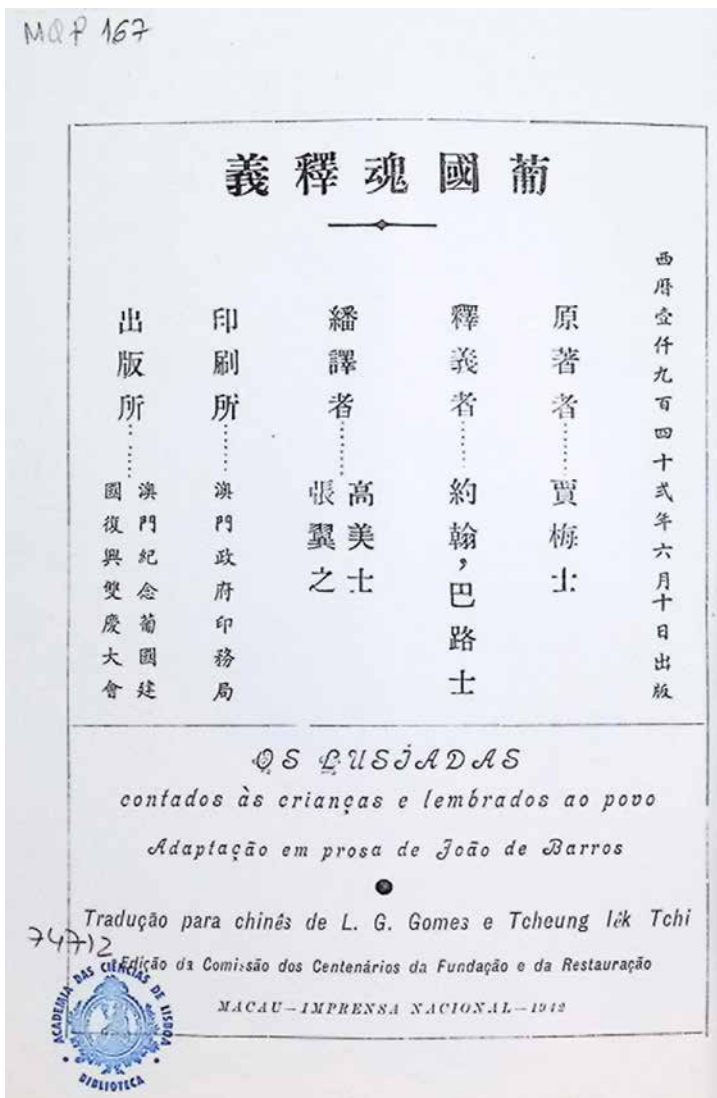 MQP 167
葡國魂釋義
西曆壹仟九百四十弍年六月十日出版
原著者……賈梅士
釋義者……約翰，巴路士
繙譯者……高美士
張翼之
印刷所……澳門政府印務局
出版所……澳門紀念葡國建
國復興雙慶大會
OS LUSÍADAS
contados às crianças e lembrados ao povo
Adaptação em prosa de João de Barros
Tradução para chinês de L. G. Gomes e Tcheung Iêk Tchi
74712
Edição da Comissão dos Centenários da Fundação e da Restauração
MACAU—IMPRENSA NACIONAL—1942
ACADEMIA DAS CIÊNCIAS DE LISBOA
BIBLIOTECA